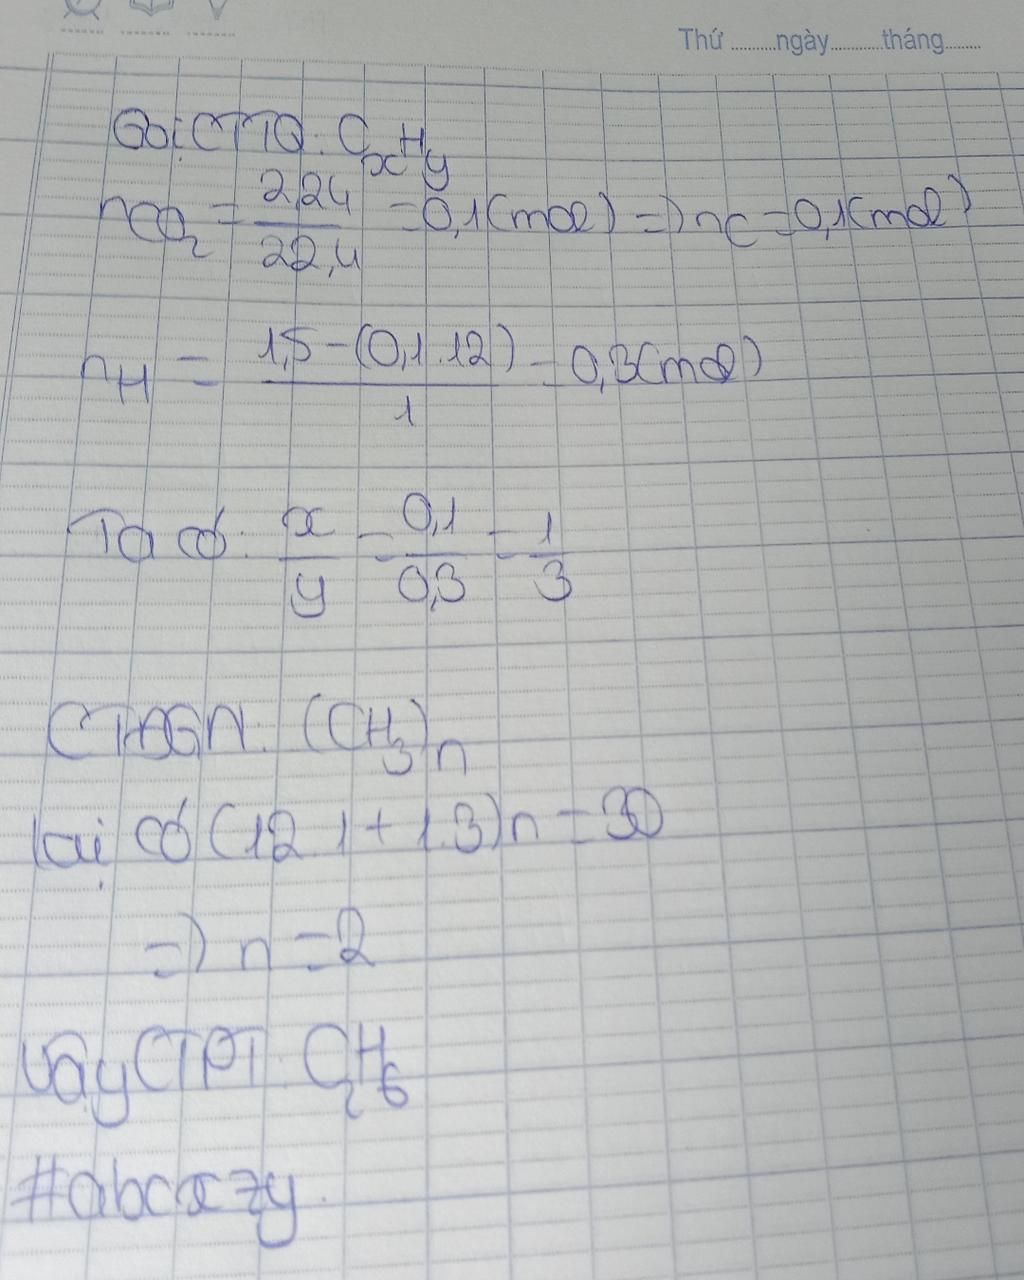 Thứ ..........ngày..........tháng........
Gọi CTTQ: CxHy
nCO2 = 2,24/22,4 = 0,1(mol) => nC = 0,1(mol)
nH = 1,5-(0,1.12)/1 = 0,3(mol)
Ta có: x/y = 0,1/0,3 = 1/3
CTĐGN: (CH3)n
lại có (12.1+1.3)n = 30
=> n = 2
Vậy CTPT: C2H6
#abcxzy.